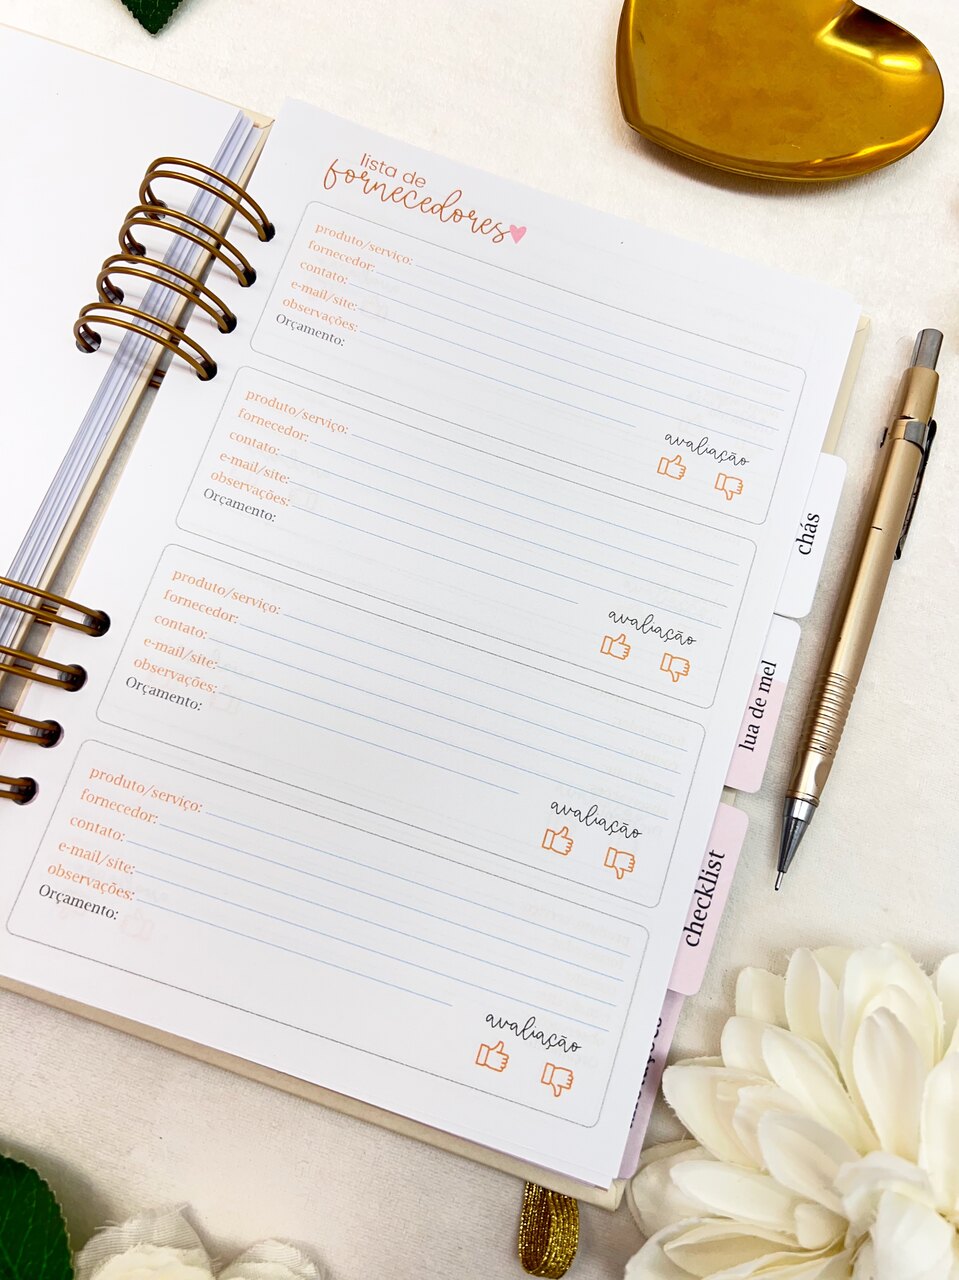 lista de
fornecedores
produto/serviço:
fornecedor:
contato:
e-mail/site:
observações:
Orçamento:
avaliação
produto/serviço:
fornecedor:
contato:
e-mail/site:
observações:
Orçamento:
avaliação
produto/serviço:
fornecedor:
contato:
e-mail/site:
observações:
Orçamento:
avaliação
produto/serviço:
fornecedor:
contato:
e-mail/site:
observações:
Orçamento:
avaliação
chás
lua de mel
checklist